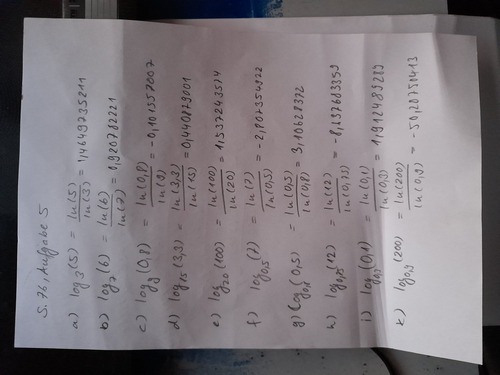 S. 76, Aufgabe 5
a) log₃(5) = ln(5)/ln(3) = 1,4649735211
b) log₇(6) = ln(6)/ln(7) = 0,920782221
c) log₉(0,8) = ln(0,8)/ln(9) = -0,101557007
d) log₁₅(3,3) = ln(3,3)/ln(15) = 0,440879001
e) log₂₀(100) = ln(100)/ln(20) = 1,537243574
f) log₀,₅(7) = ln(7)/ln(0,5) = -2,807354922
g) log₀,₈(0,5) = ln(0,5)/ln(0,8) = 3,10628372
h) log₀,₇₅(12) = ln(12)/ln(0,75) = -8,637683359
i) log₀,₃(0,1) = ln(0,1)/ln(0,3) = 1,912489289
k) log₀,₉(200) = ln(200)/ln(0,9) = -50,28750413